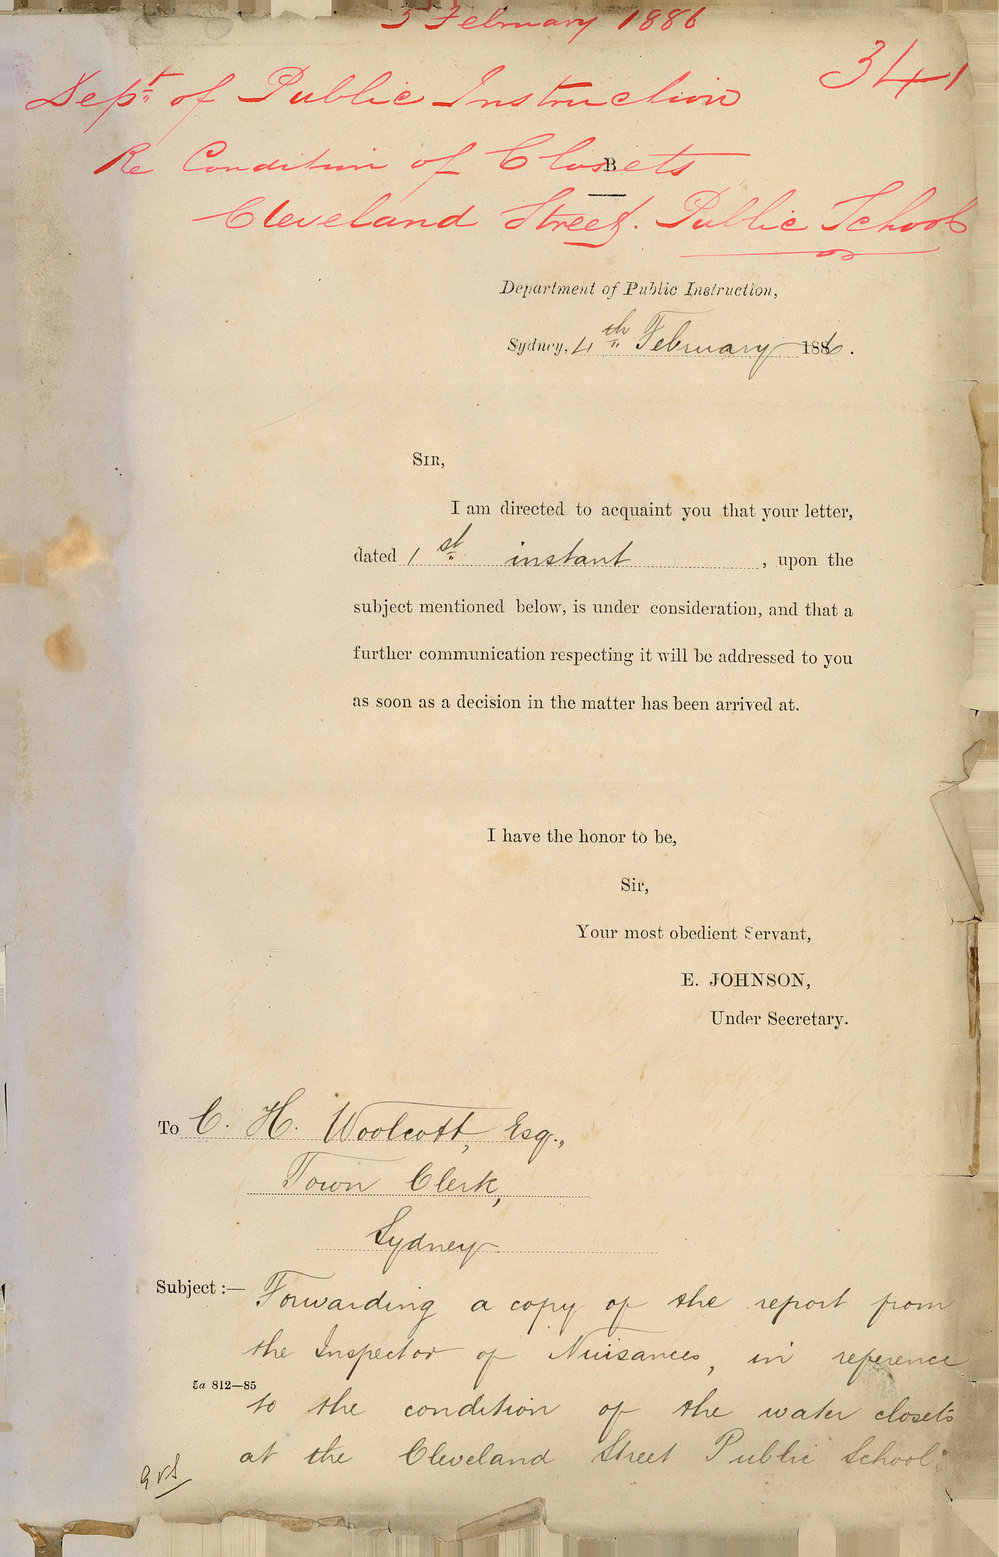 5 February 1886
341
Dept of Public Instruction
Re Condition of Closets
B
Cleveland Street Public School
Department of Public Instruction,
Sydney, 4th February 1886.
SIR,
I am directed to acquaint you that your letter,
dated 1st instant, upon the
subject mentioned below, is under consideration, and that a
further communication respecting it will be addressed to you
as soon as a decision in the matter has been arrived at.
I have the honor to be,
Sir,
Your most obedient Servant,
E. JOHNSON,
Under Secretary.
To C. H. Woolcott, Esq.,
Town Clerk,
Sydney
Subject :— Forwarding a copy of the report from
the Inspector of Nuisances, in reference
5a 812—85
to the condition of the water closets
at the Cleveland Street Public School.